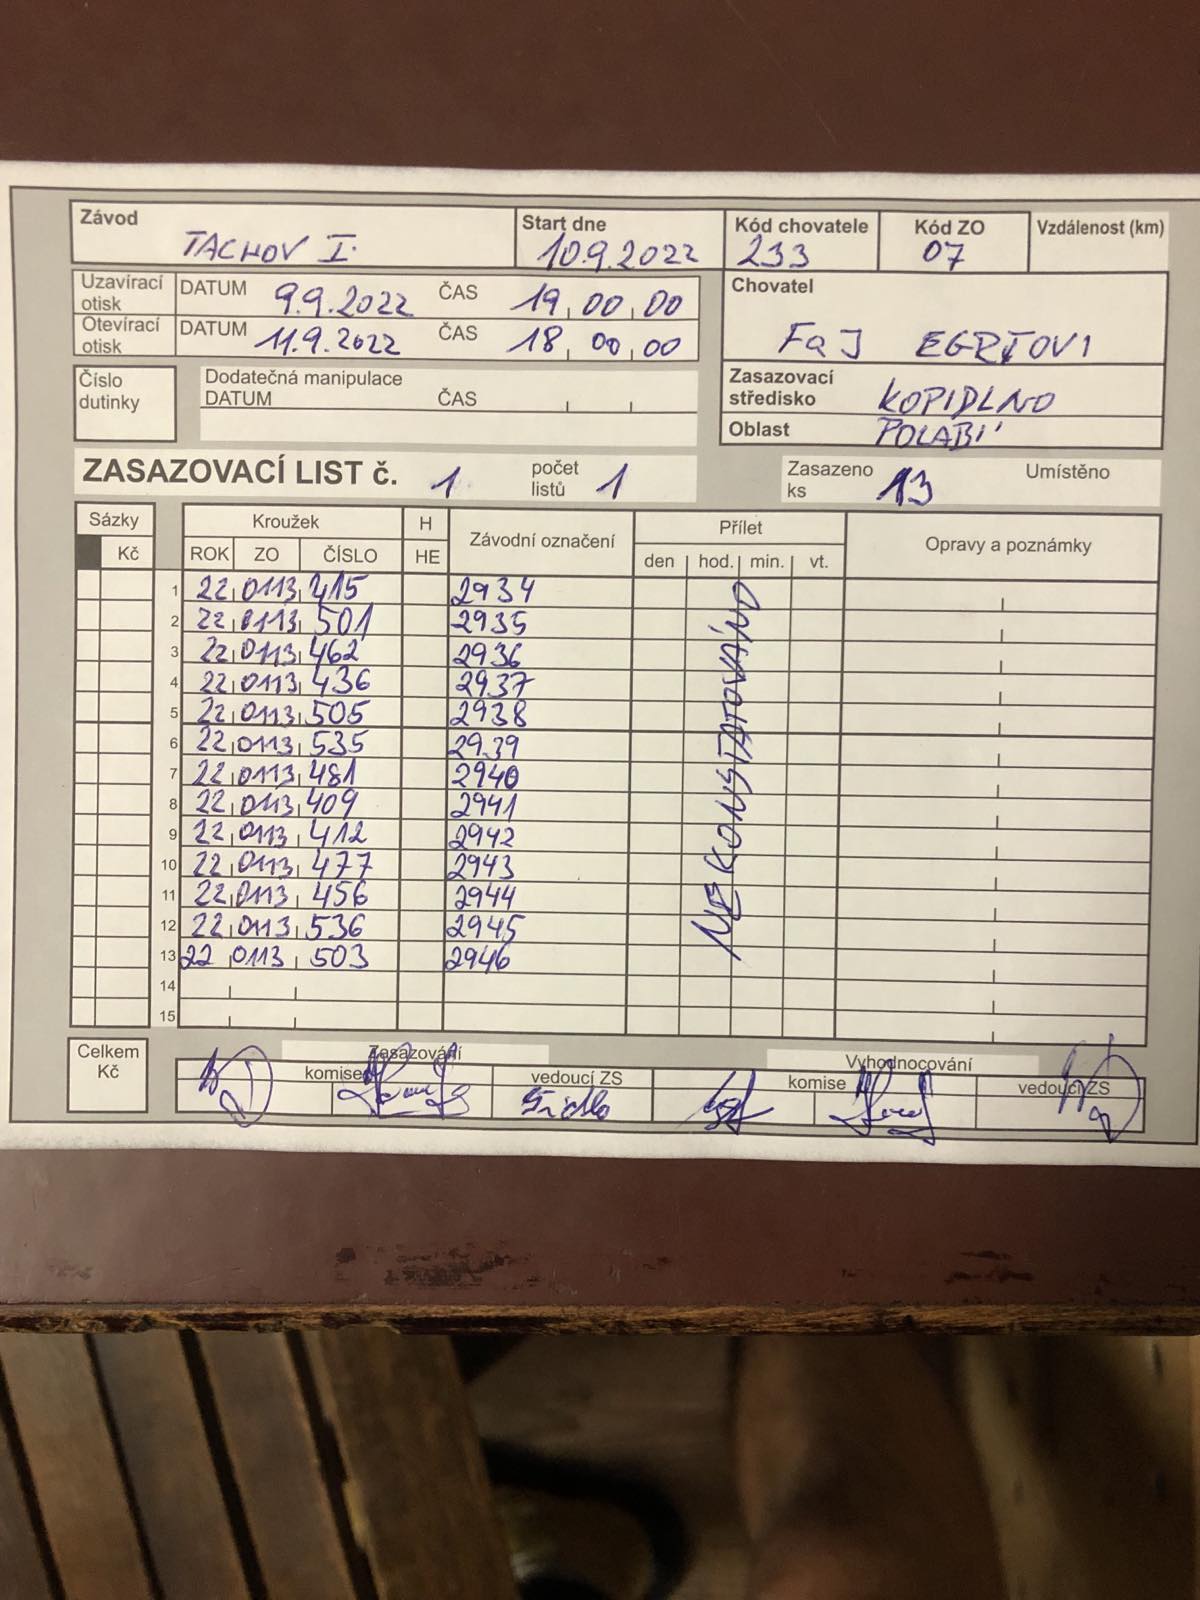 Závod TACHOV I. Start dne 10.9.2022 Kód chovatele 233 Kód ZO 07 Vzdálenost (km)
Uzavírací otisk DATUM 9.9.2022 ČAS 19 00 00
Otevírací otisk DATUM 11.9.2022 ČAS 18 00 00
Chovatel
F a J EGRTOVI
Číslo dutinky
Dodatečná manipulace
DATUM ČAS
Zasazovací středisko KOPIDLNO
Oblast POLABÍ
ZASAZOVACÍ LIST č. 1 počet listů 1 Zasazeno ks 13 Umístěno
Sázky Kroužek H Závodní označení Přílet Opravy a poznámky
Kč ROK ZO ČÍSLO HE den hod. min. vt.
1 22 0113 415 2934
2 22 0113 501 2935
3 22 0113 462 2936
4 22 0113 436 2937
5 22 0113 505 2938
6 22 0113 535 2939
7 22 0113 481 2940
8 22 0113 409 2941
9 22 0113 412 2942
10 22 0113 477 2943
11 22 0113 456 2944
12 22 0113 536 2945
13 22 0113 503 2946
14
15
NEKONSTATOVÁNO
Celkem Kč
Zasazování Vyhodnocování
komise vedoucí ZS komise vedoucí ZS